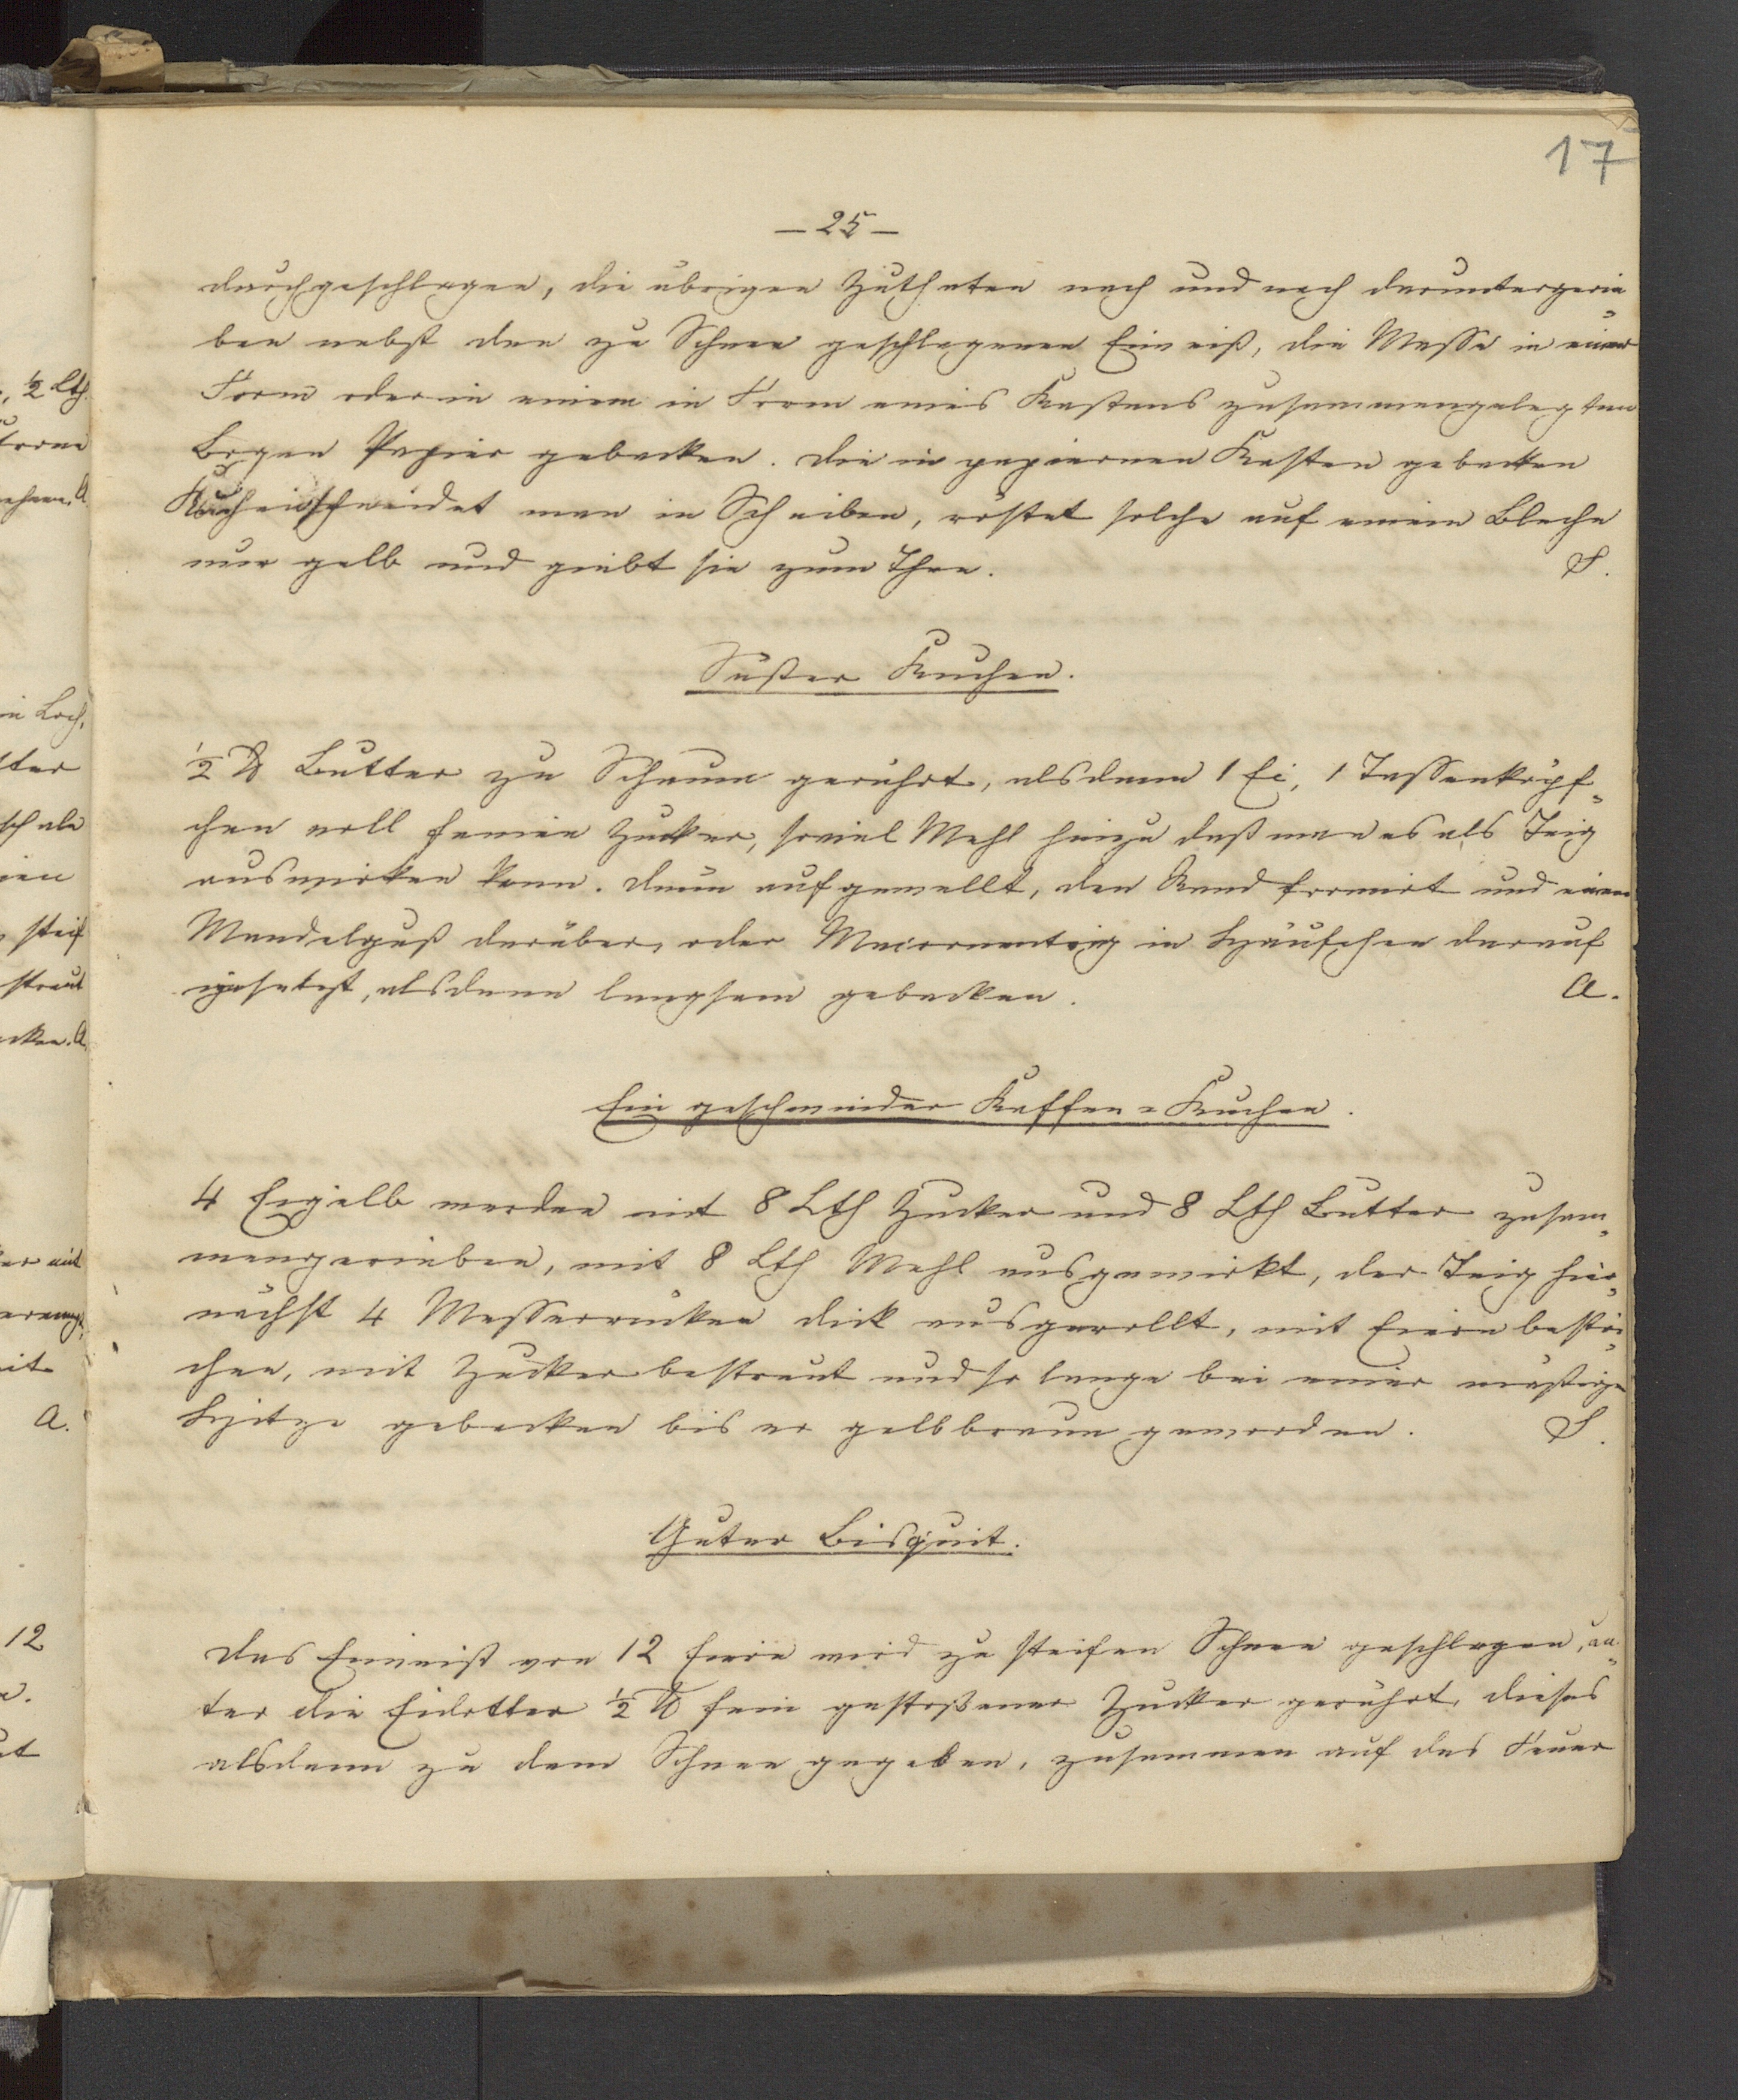 17
— 25 —
durchgeschlagen, die übrigen Zuthaten nach und nach daruntergerie¬
ben nebst den zu Schnee geschlagenen Eiweiß, die Masse in einer
Form oder in einem in Form eines Kastens zusammengelegten
Bogen Papier gebacken. Die in papiernen Kasten gebacken
Kuchen schneidet man in Scheiben, röstet solche auf einem Bleche
nur gelb und giebt sie zum Thee. S.
Süßer Kuchen.
½ ℔ Butter zu Schaum gerührt, alsdann 1 Ei, 1 Tassenköpf¬
chen voll feinen Zucker, soviel Mehl hinzu daß man es als Teig
auswirken kann. Dann aufgewellt, den Rand formirt und einen
Mandelguß darüber, oder Macronenteig in Häufchen darauf
gesetzt, alsdann langsam gebacken. A.
Ein geschwinder Kaffee=Kuchen.
4 Eigelb werden mit 8 Lth Zucker und 8 Lth Butter zusam¬
mengerieben, mit 8 Lth Mehl ausgewirkt, der Teig hier¬
nächst 4 Messerrücken dick ausgerollt, mit Eiern bestri¬
chen, mit Zucker bestreut und so lange bei einer mäßigen
Hitze gebacken bis er gelbbraun geworden. S.
Guter Bisquit.
Das Eiweiß von 12 Eiern wird zu steifen Schnee geschlagen, un¬
ter die Eidotter ½ ℔ fein gestoßener Zucker gerührt, dieses
alsdann zu dem Schnee gegeben, zusammen auf das Feuer